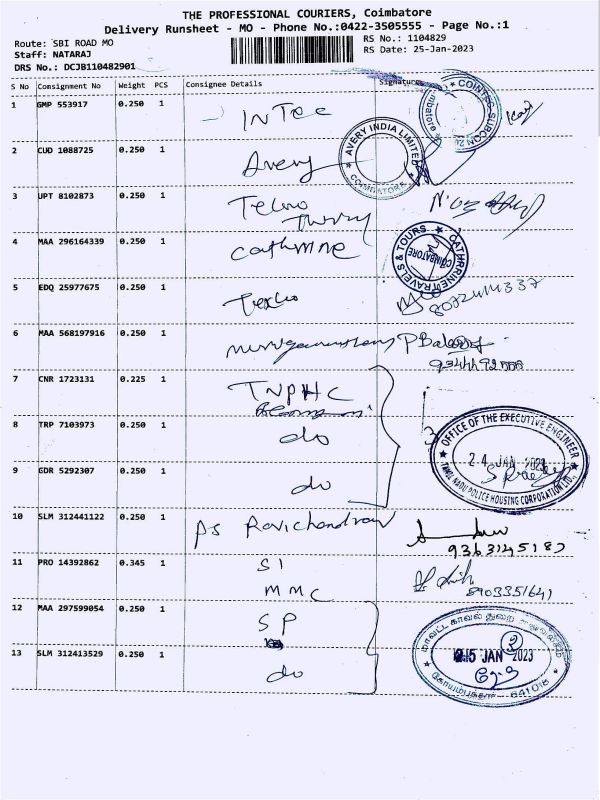 THE PROFESSIONAL COURIERS, Coimbatore
Delivery Runsheet - MO - Phone No.:0422-3505555 - Page No.:1
Route: SBI ROAD MO
RS No.: 1104829
Staff: NATARAJ
RS Date: 25-Jan-2023
DRS No.: DCJB110482901
S No Consignment No Weight PCS Consignee Details Signature
1 GMP 553917 0.250 1 INTEC
COINTEC SUBCON
2 CUD 1088725 0.250 1 Avery
AVERY INDIA LIMITED
COIMBATORE
3 UPT 8102873 0.250 1
4 MAA 296164339 0.250 1 Cathrine
CATHRINE TRAVELS & TOURS
COIMBATORE
5 EDQ 25977675 0.250 1
6 MAA 568197916 0.250 1
7 CNR 1723131 0.225 1 TNPHC
8 TRP 7103973 0.250 1 do
OFFICE OF THE EXECUTIVE ENGINEER
24 JAN 2023
TAMIL NADU POLICE HOUSING CORPORATION LTD.,
9 GDR 5292307 0.250 1 do
10 SLM 312441122 0.250 1 PS Ravichandran
9363145187
11 PRO 14392862 0.345 1 SI
MMC
12 MAA 297599054 0.250 1 SP
மாவட்ட காவல் துறை
25 JAN 2023
கோயம்புத்தூர் - 641018
13 SLM 312413529 0.250 1 do